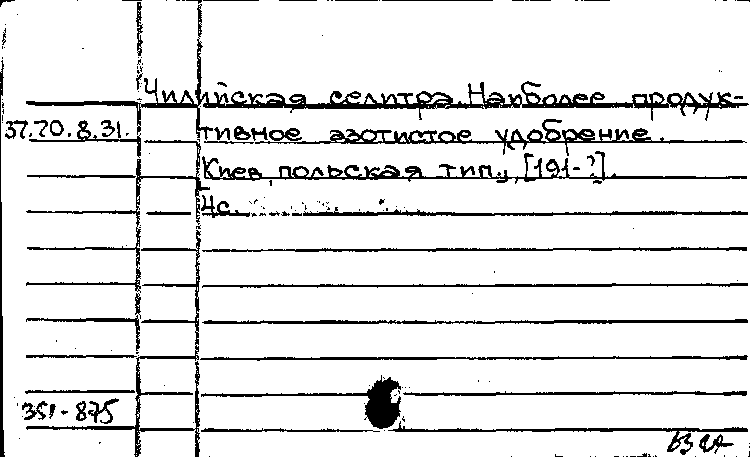 Чилийская селитра. Наиболее продук-
37.20.8.31. тивное азотистое удобрение.
Киев, польская тип., [191-?].
4с.
351-875